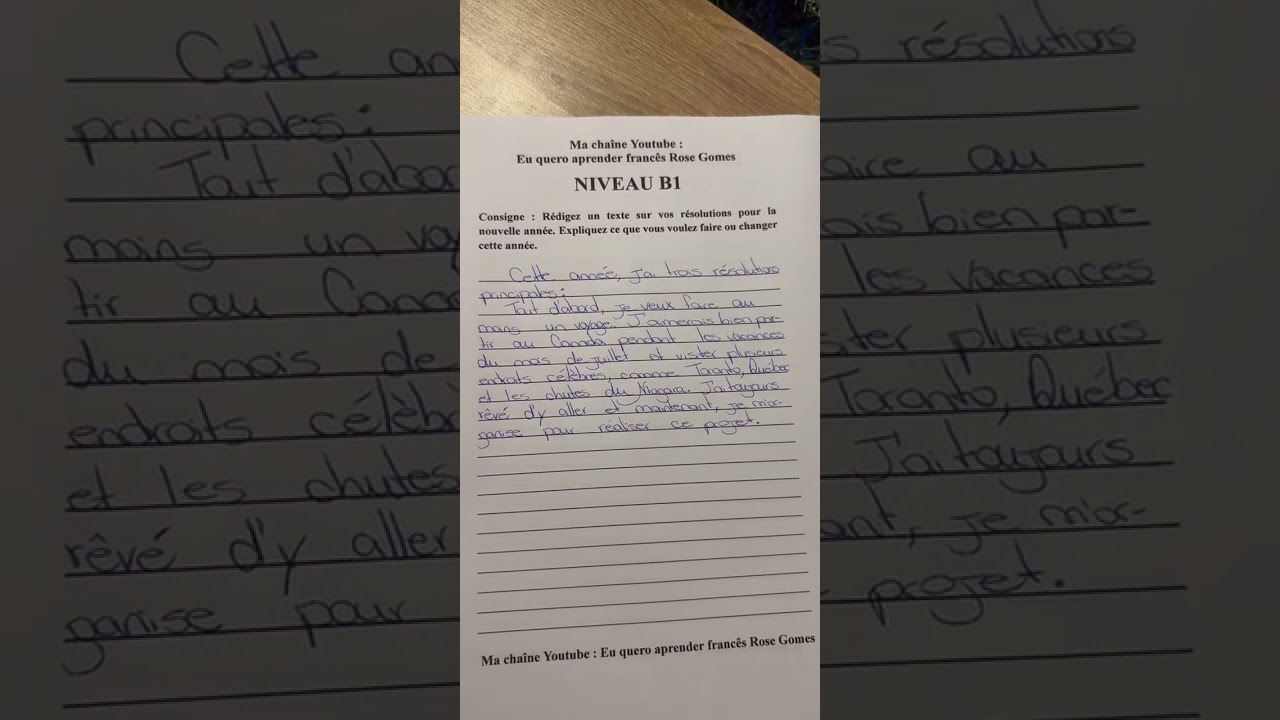 Ma chaîne Youtube :
Eu quero aprender francês Rose Gomes
NIVEAU B1
Consigne : Rédigez un texte sur vos résolutions pour la
nouvelle année. Expliquez ce que vous voulez faire ou changer
cette année.
Cette année, j'ai trois résolutions
principales :
Tout d'abord, je veux faire au
moins un voyage. J'aimerais bien par-
tir au Canada pendant les vacances
du mois de juillet et visiter plusieurs
endroits célèbres, comme Toronto, Québec
et les chutes du Niagara. J'ai toujours
rêvé d'y aller et maintenant, je m'or-
ganise pour réaliser ce projet.
Ma chaîne Youtube : Eu quero aprender francês Rose Gomes